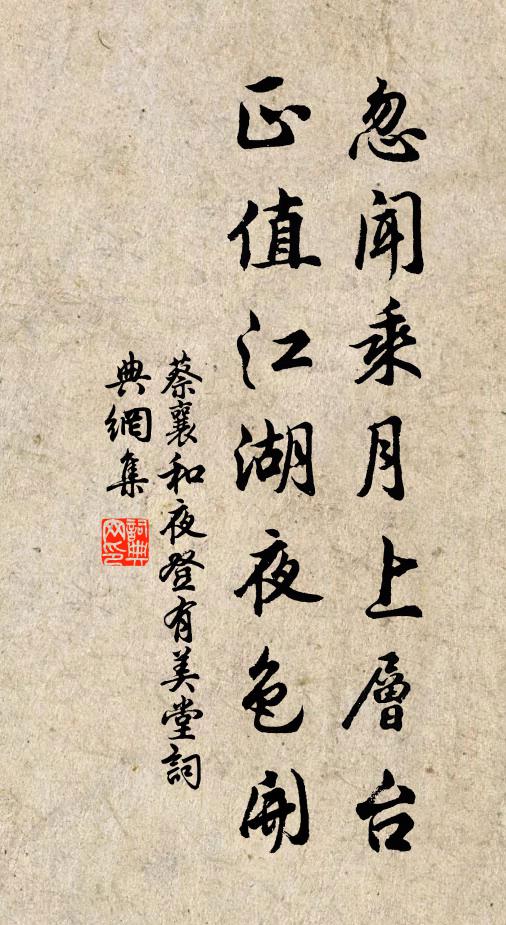 忽闻乘月上層台
正值江湖夜色開
蔡襄和夜登有美堂詞
典網集
詞典
网印